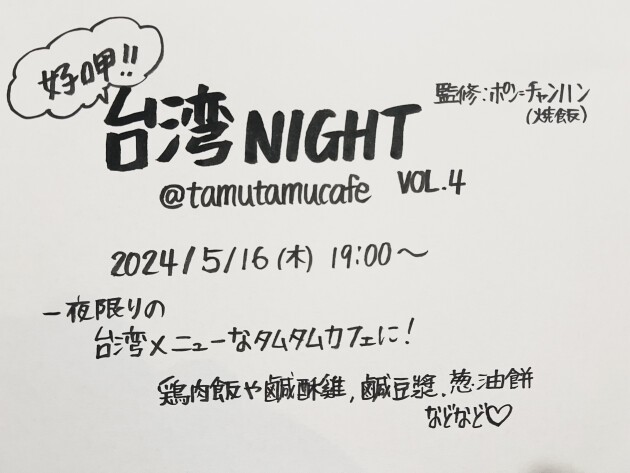 好呷!!
台湾NIGHT
監修:ポン=チャンハン
(焼飯)
@tamutamucafe VOL.4
2024/5/16(木) 19:00〜
一夜限りの
台湾メニューなタムタムカフェに!
鶏肉飯や鹹酥雞,鹹豆漿、葱油餅
などなど♡